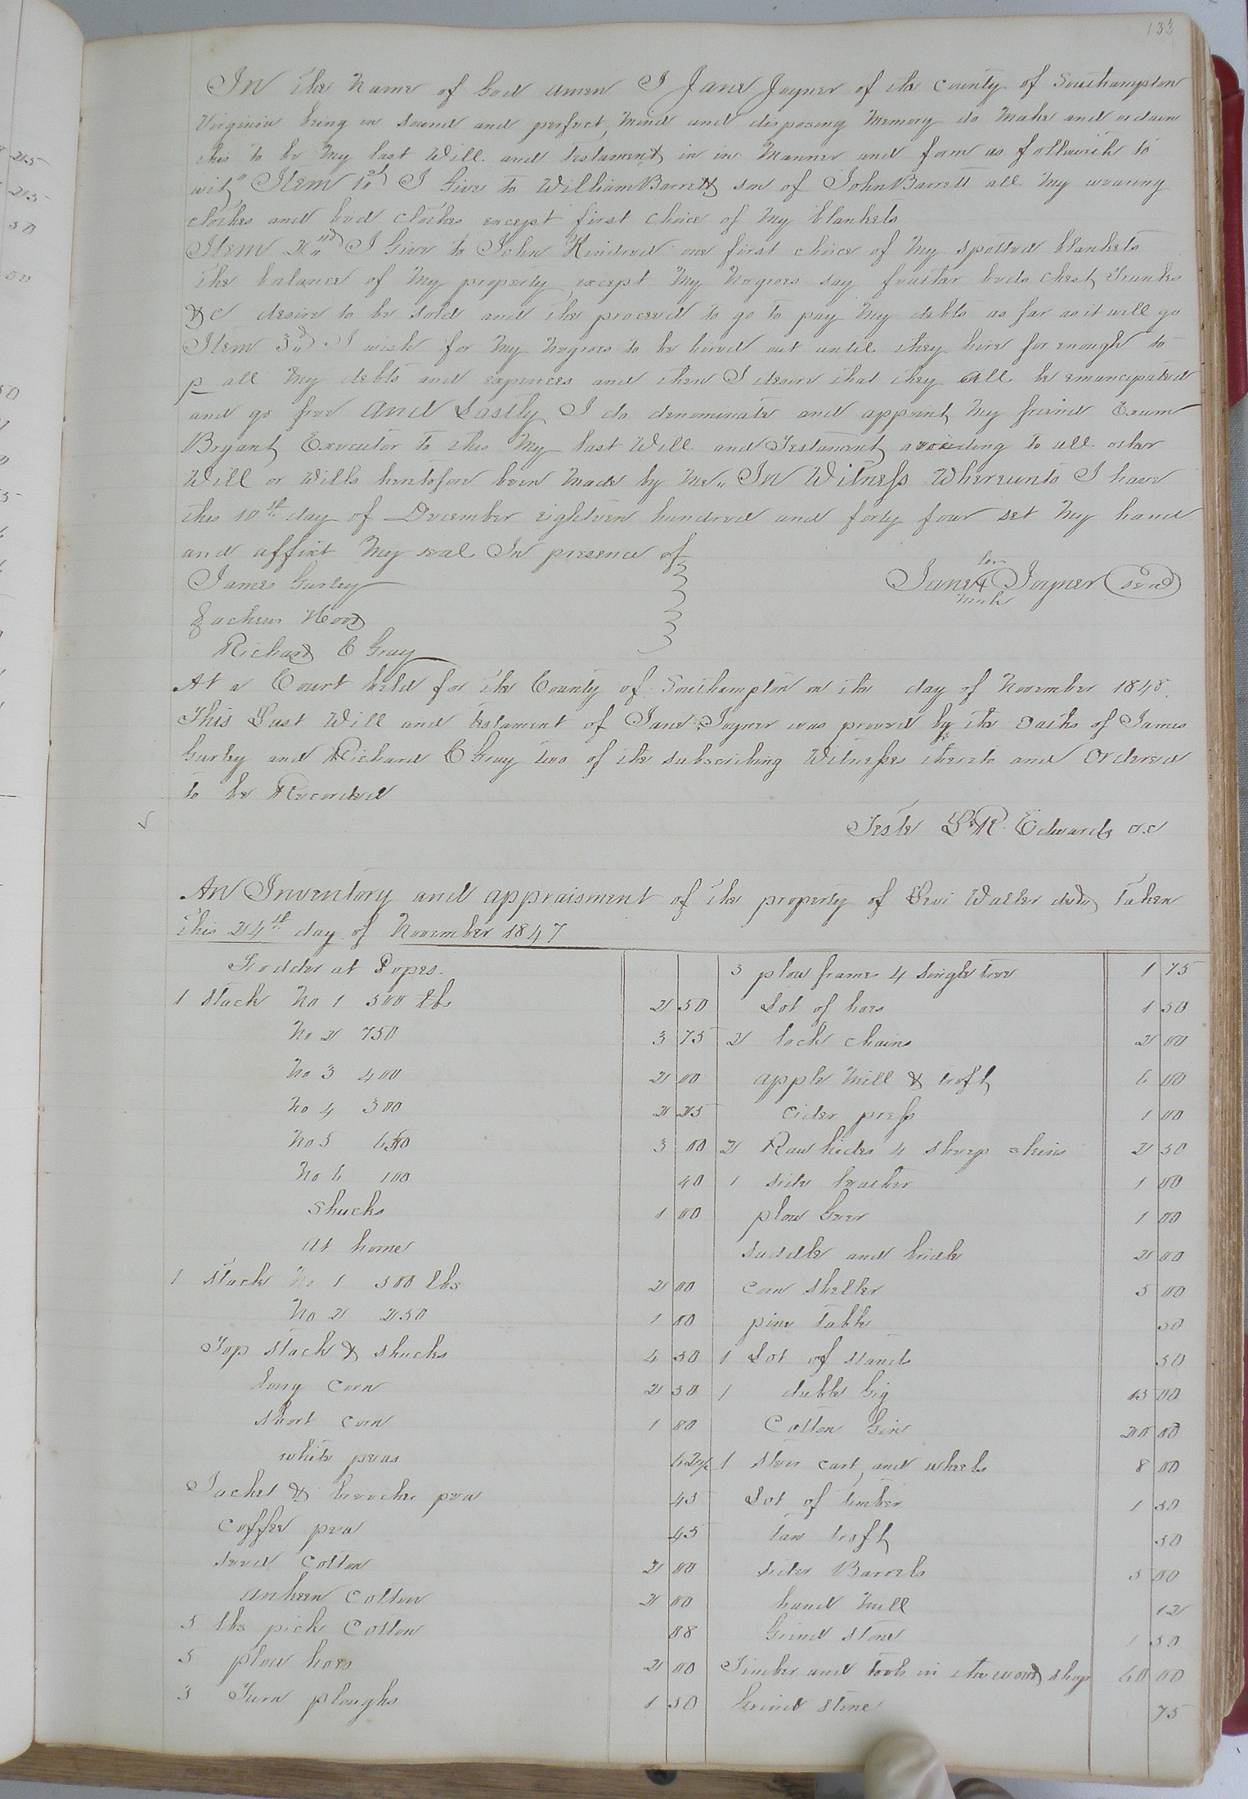 133
In the Name of God amen I Jane Joyner of the County of Southampton
Virginia being in sound and perfect, mind and disposing Memory do Make and ordain
this to be My last Will and testament in in Manner and form as followith to
wit, Item 1st I Give to William Barrett son of John Barrett all My wearing
clothes and bed clothes except first choice of My blankets
Item 2nd I Give to John Kindred one first choice of My spotted blankets
the balance of My property except My Negroes say feather beds Chest, Trunks
&C desire to be sold and the proceed to go to pay My debts as far as it will go
Item 3d I wish for My Negroes to be hired out until they hire for enough to
p all My debts and expences and then I desire that they all be emancipated
and go free and Lastly I do denominate and appoint My friend Exum
Bryant Executor to this My last Will and Testament avoiding to all other
Will or Wills heretofore been Made by Me, In Witness Whereunto I have
this 10th day of December eighteen hundred and forty four set My hand
and affixt My seal In presence of
James Gurley
Jane her 4 mark Joyner (seal)
Zacheus Hood
Richard C Gray
At a Court held for the County of Southampton on the day of November 1848.
This Last Will and testament of Jane Joyner was proved by the oaths of James
Gurley and Richard C Gray two of the subscribing Witnesses thereto and Ordered
to be Recorded
Teste L R Edwards cc
An Inventory and appraisment of the property of Levi Waller decd, taken
this 24th day of November 1847
Fodder at Popes.
1 stack No 1 500 lbs 2 50
No 2 750 3 75
No 3 400 2 00
No 4 500 2 25
No 5 650 3 00
No 6 100 40
shucks 1 00
at home
1 stack No 1 500 lbs 2 00
No 2 250 1 00
Top stack & shucks 4 50
long corn 2 50
short corn 1 80
white peas
Jacket & peas 45
coffee peas 45
seed cotton 2 00
cotton 2 00
5 lbs pick Cotton 88
5 plow hoes 2 00
3 Turn ploughs 1 50
3 plow frames 4 single tree 1 75
Lot of hoes 1 50
2 lock chains 2 00
apple Mill & troft 6 00
cider press 1 00
2 Raw hides 4 sheep skins 2 50
1 side leather 1 00
plow Geer 1 00
saddle and bridle 2 00
corn sheller 5 00
pine table 50
1 Lot of stands 50
1 dubble Gig 15 00
Cotton Gin 20 00
1 steer cart, and wheels 8 00
Lot of timber 1 50
tan troft 50
sider Barrels 5 00
hand Mill 12
Grind stone 1 50
Timber and tools in the wood shop 60 00
Grind stone 75